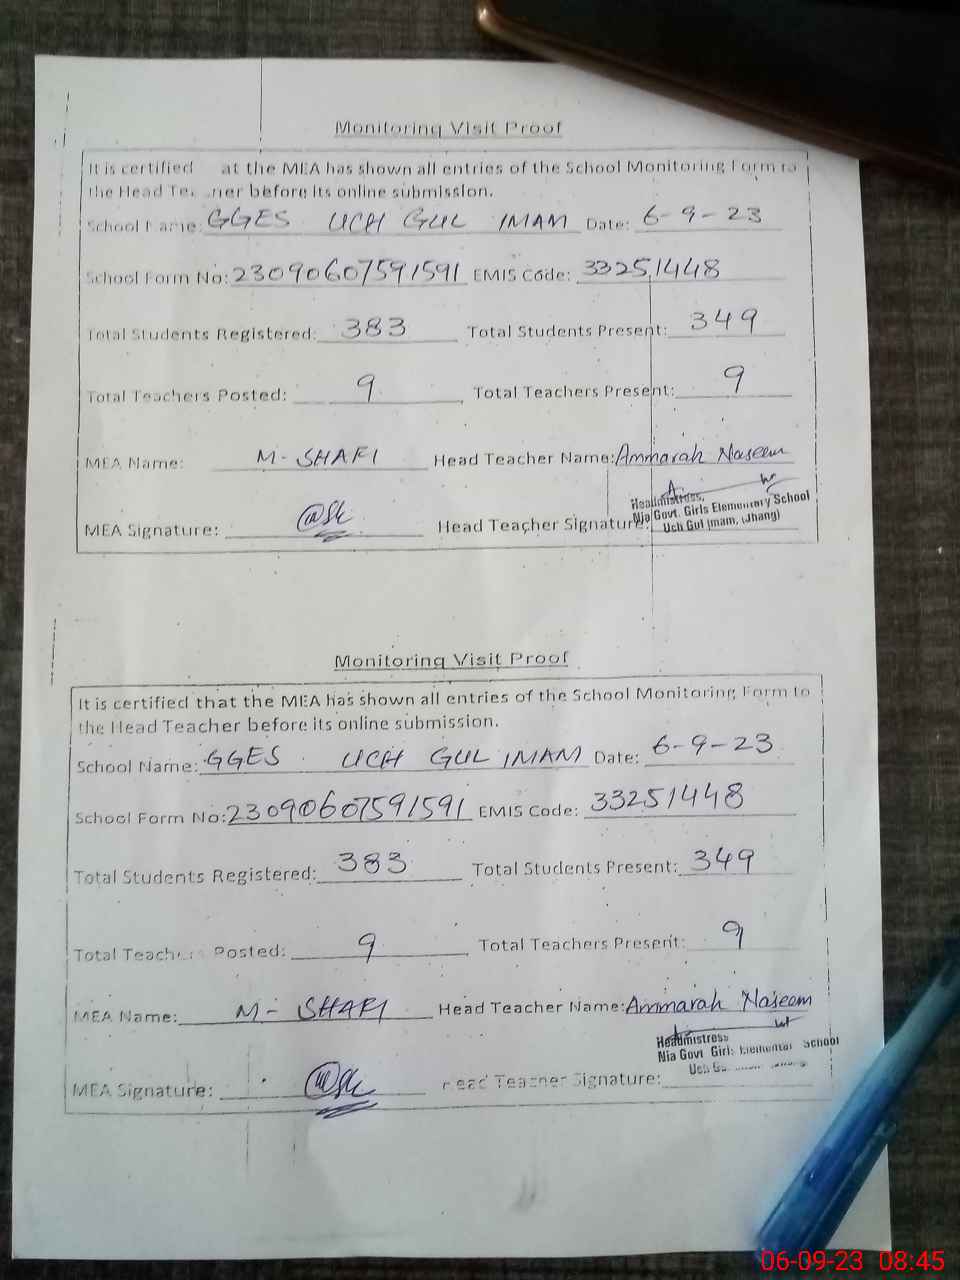 Monitoring Visit Proof
It is certified at the MEA has shown all entries of the School Monitoring Form to
the Head Te ner before its online submission.
School Name: GGES UCH GUL IMAM Date: 6-9-23
School Form No: 23090607591591 EMIS Code: 33251448
Total Students Registered: 383 Total Students Present: 349
Total Teachers Posted: 9 Total Teachers Present: 9
MEA Name: M-SHAFI Head Teacher Name: Ammarah Naseem
Headmistress,
Nia Govt. Girls Elementary School
Uch Gul Imam, (Jhang)
MEA Signature: Head Teacher Signature:
Monitoring Visit Proof
It is certified that the MEA has shown all entries of the School Monitoring Form to
the Head Teacher before its online submission.
School Name: GGES UCH GUL IMAM Date: 6-9-23
School Form No: 23090607591591 EMIS Code: 33251448
Total Students Registered: 383 Total Students Present: 349
Total Teachers Posted: 9 Total Teachers Present: 9
MEA Name: M-SHAFI Head Teacher Name: Ammarah Naseem
Headmistress
Nia Govt Girls Elementar School
Uch Gu
MEA Signature: Head Teacher Signature:
06-09-23 08:45